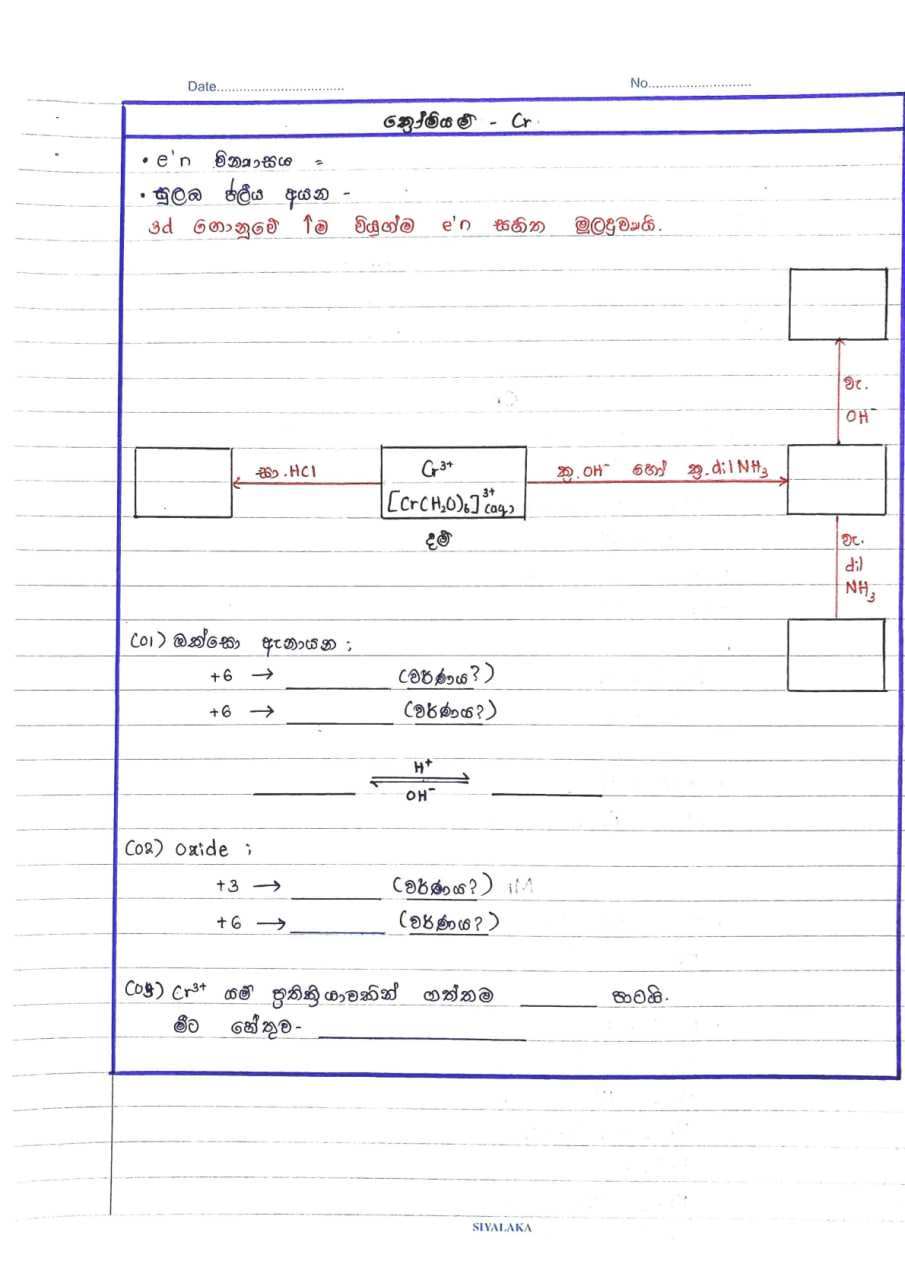 Date.................................
No...........................
ක්‍රෝමියම් - Cr
• e'n වින්‍යාසය =
• සුලබ ජලීය අයන -
3d ගොනුවේ ↑ම වියුග්ම e'n සහිත මූලද්‍රව්‍යයි.
වැ.
OH⁻
සා.HCl
Cr³⁺
[Cr(H₂O)₆]³⁺(aq)
දම්
කු.OH⁻ හෝ කු.dil NH₃
වැ.
dil
NH₃
(01) ඔක්සො ඇනායන ;
+6 → __________ (වර්ණය?)
+6 → __________ (වර්ණය?)
__________ H⁺ ⇌ OH⁻ __________
(02) Oxide ;
+3 → __________ (වර්ණය?)
+6 → __________ (වර්ණය?)
(03) Cr³⁺ යම් ප්‍රතික්‍රියාවකින් ගත්තම ________ පාටයි.
මීට හේතුව- ____________________
SIYALAKA